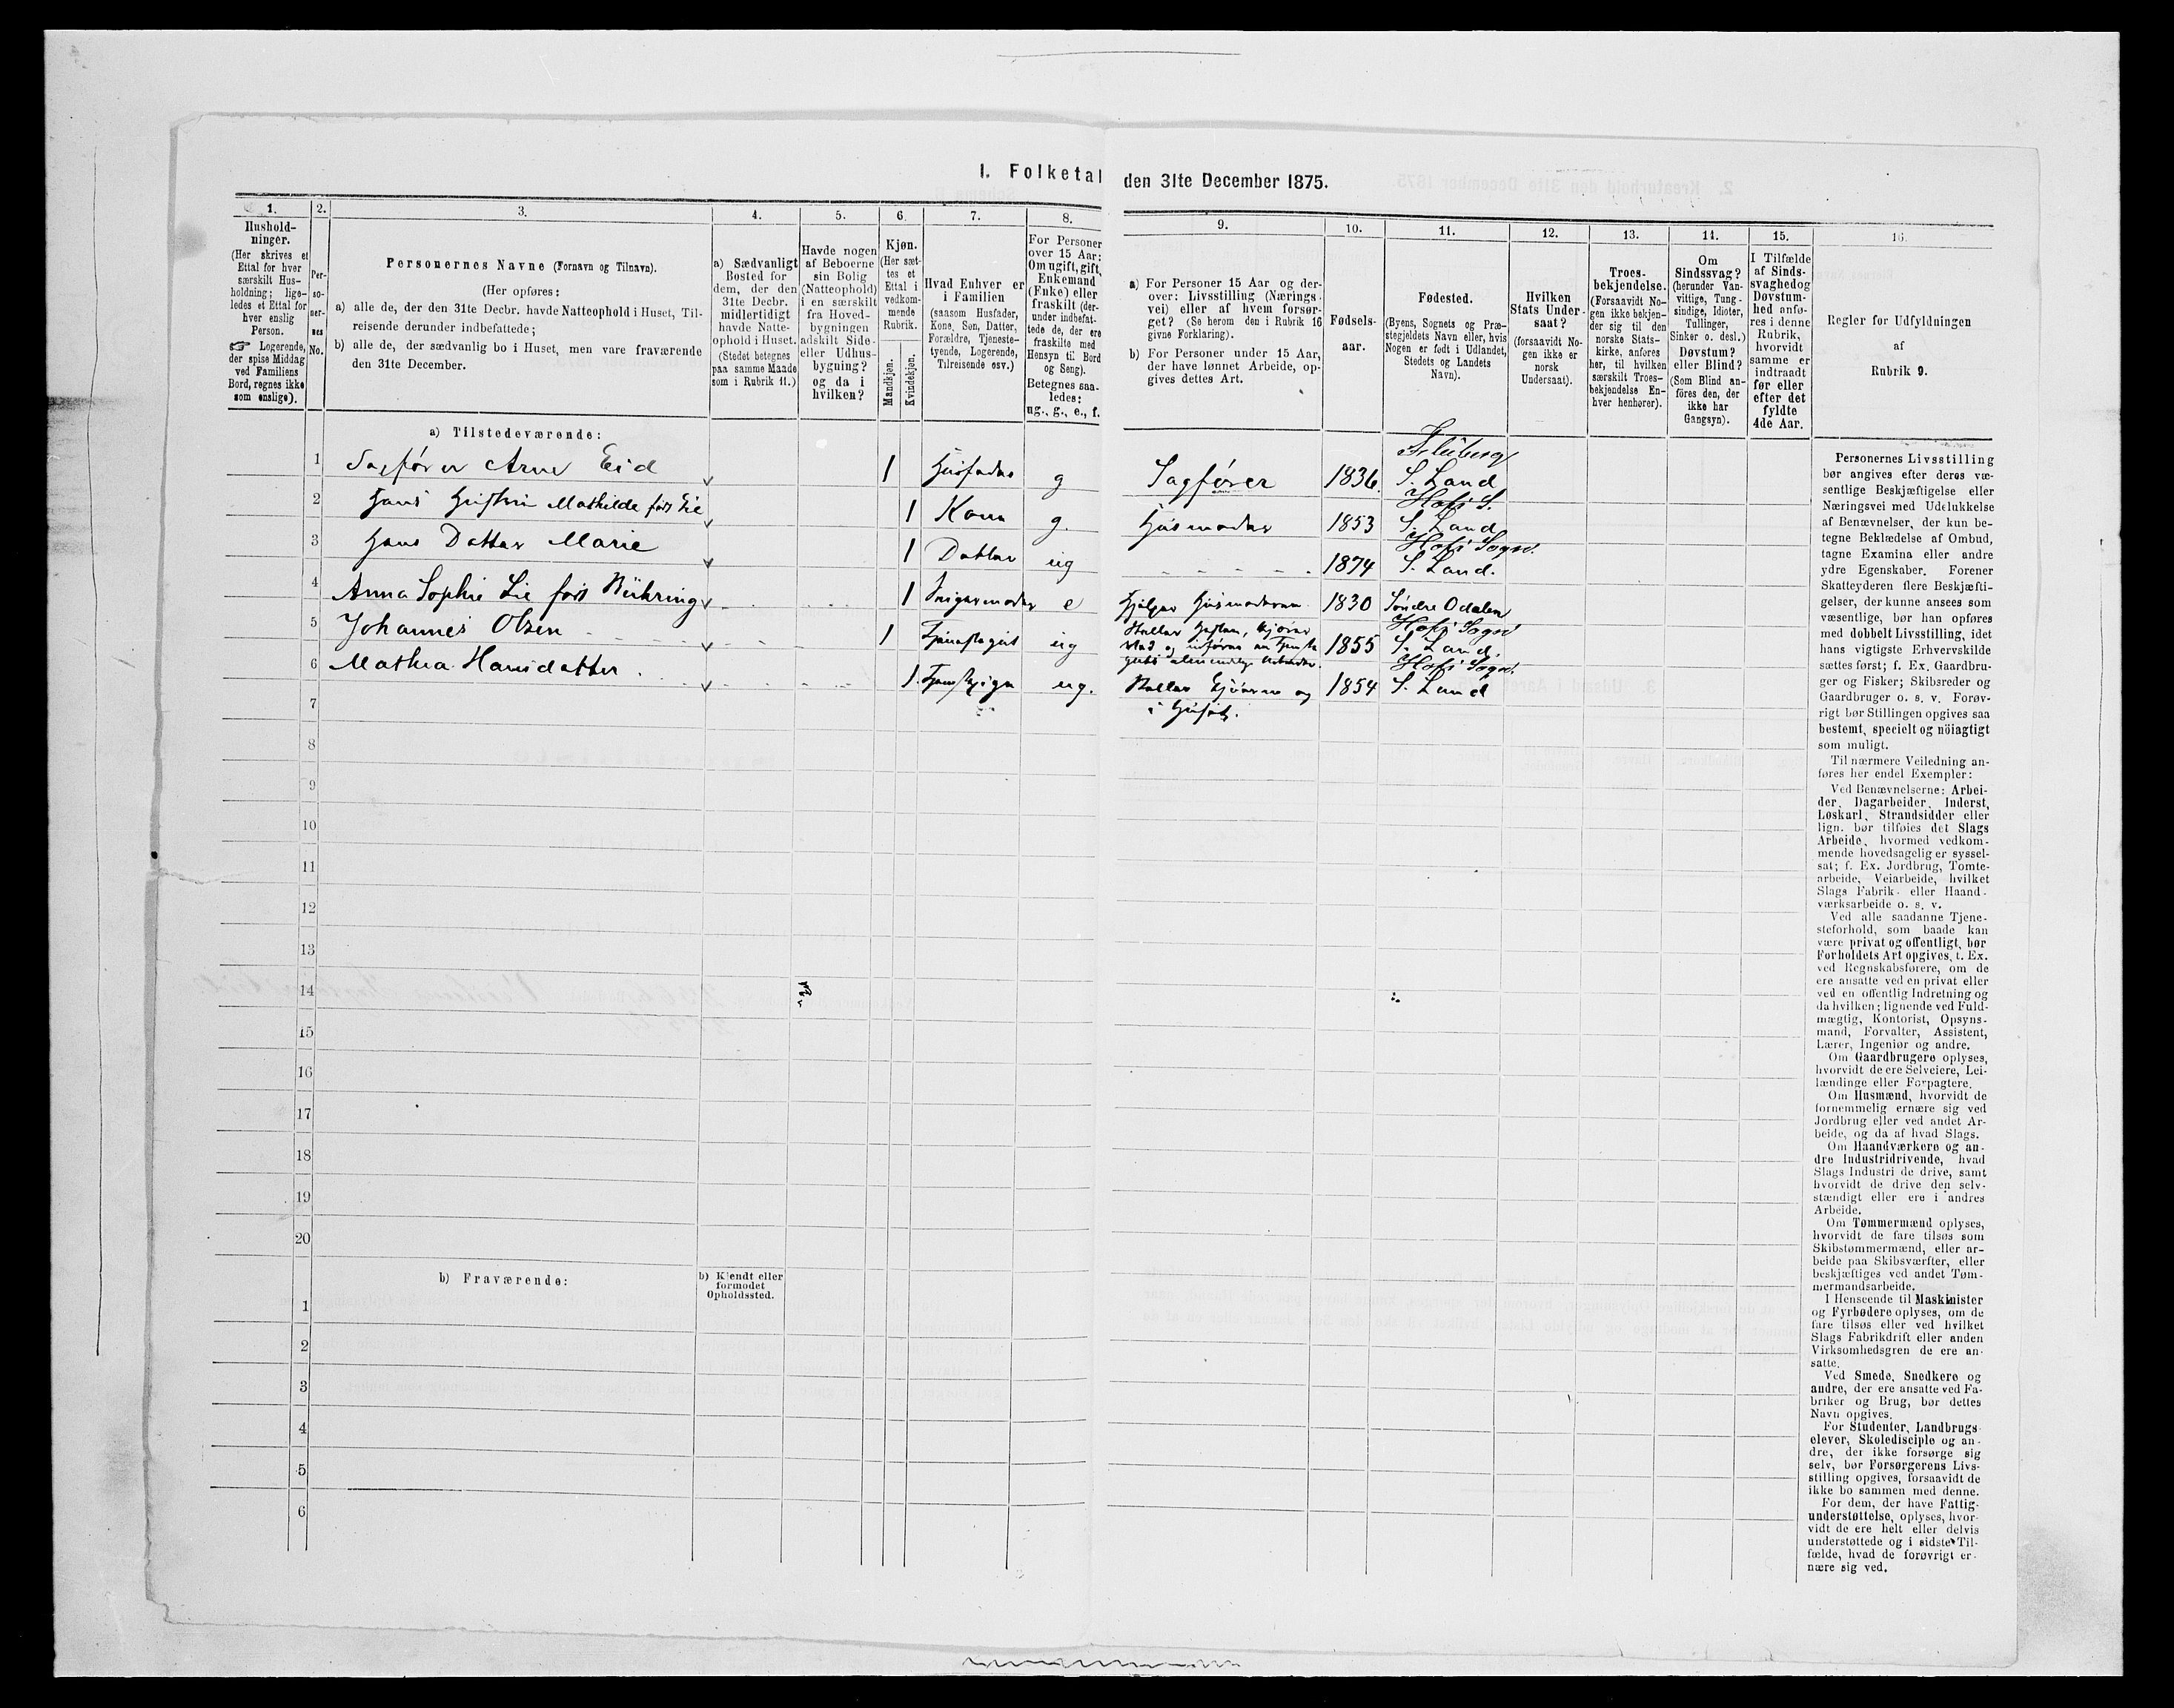 I. Folketal den 31te December 1875.
1.
2.
3.
4.
5.
6.
7.
8.
9.
10.
11.
12.
13.
14.
15.
16.
Hushold-
ninger.
(Her skrives et
Ettal for hver
særskilt Hus-
holdning; lige-
ledes et Ettal for
hver enslig
Person.
☞ Logerende,
der spise Middag
ved Familiens
Bord, regnes ikke
som enslige).
Per-
so-
ner-
nes
No.
Personernes Navne (Fornavn og Tilnavn).
(Her opføres:
a) alle de, der den 31te Decbr. havde Natteophold i Huset, Til-
reisende derunder indbefattede;
b) alle de, der sædvanlig bo i Huset, men vare fraværende
den 31te December.
a) Sædvanligt
Bosted for
dem, der den
31te Decbr.
midlertidigt
havde Natte-
ophold i Huset.
(Stedet betegnes
paa samme Maade
som i Rubrik 11.)
Havde nogen
af Beboerne
sin Bolig
(Natteophold)
i en særskilt
fra Hoved-
bygningen
adskilt Side-
eller Udhus-
bygning?
og da i
hvilken?
Kjøn.
(Her sæt-
tes et
Ettal i
vedkom-
mende
Rubrik.
Mandkjøn.
Kvindekjøn.
Hvad Enhver er
i Familien
(saasom Husfader,
Kone, Søn, Datter,
Forældre, Tjeneste-
tyende, Logerende,
Tilreisende osv.)
For Personer
over 15 Aar:
Om ugift, gift,
Enkemand
(Enke) eller
fraskilt (der-
under indbefat-
tede de, der ere
fraskilte med
Hensyn til Bord
og Seng).
Betegnes saa-
ledes:
ug., g., e., f.
a) For Personer 15 Aar og der-
over: Livsstilling (Nærings-
vei) eller af hvem forsør-
get? (Se herom den i Rubrik 16
givne Forklaring).
b) For Personer under 15 Aar,
der have lønnet Arbeide, op-
gives dettes Art.
Fødsels-
aar.
Fødested.
(Byens, Sognets og Præ-
stegjeldets Navn eller, hvis
Nogen er født i Udlandet,
Stedets og Landets
Navn).
Hvilken
Stats Under-
saat?
(forsaavidt No-
gen ikke er
norsk
Undersaat).
Troes-
bekjendelse.
(Forsaavidt No-
gen ikke bekjen-
der sig til den
norske Stats-
kirke, anføres
her, til hvilken
særskilt Troes-
bekjendelse En-
hver henhører).
Om
Sindssvag?
(herunder Van-
vittige, Tung-
sindige, Idioter,
Tullinger,
Sinker o. desl.)
Døvstum?
eller Blind?
(Som Blind an-
føres den, der
ikke har
Gangsyn).
I Tilfælde
af Sinds-
svaghed og
Døvstum-
hed anfø-
res i denne
Rubrik,
hvorvidt
samme er
indtraadt
før eller
efter det
fyldte
4de Aar.
Regler for Udfyldningen
af
Rubrik 9.
a) Tilstedeværende:
1 Sagfører Arne Eid 1 Husfader g Sagfører 1836. Fluberg S. Land
2 Hans Hustru Mathilde født Lie 1 Kone g. Husmoder 1853 Hofs S. S. Land
3 Hans Datter Marie 1 Datter ug 1874 Hofs Sogn. S. Land.
4 Anna Sophie Lie født Bühring 1 Svigermoder e Hjelper Husmoderen 1830 Søndre Odalen
5 Johannes Olsen 1 Tjenestegut ug Steller Hesten, kjører Ved og udfører en Tjeneste guts almindelige Arbeider. 1855 Hofs Sogn S. Land.
6 Mathea Hansdatter 1. Tjenestepige ug. Steller Kjørene og i Huset. 1854 Hofs Sogn. S. Land
7
8
9
10
11
12
13
14
15
16
17
18
19
20
b) Fraværende:
b) Kjendt eller
formodet
Opholdssted.
1
2
3
4
5
6
Personernes Livsstilling
bør angives efter deres væ-
sentlige Beskjæftigelse eller
Næringsvei med Udelukkelse
af Benævnelser, der kun be-
tegne Beklædelse af Ombud,
tagne Examina eller andre
ydre Egenskaber. Forener
Skatteyderen flere Beskjæfti-
gelser, der kunne ansees som
væsentlige, bør han opføres
med dobbelt Livsstilling, idet
hans vigtigste Erhvervskilde
sættes først; f. Ex. Gaardbru-
ger og Fisker; Skibsreder og
Gaardbruger o. s. v. Forøv-
rigt bør Stillingen opgives saa
bestemt, specielt og nöiagtigt
som muligt.
Til nærmere Veiledning an-
føres her endel Exempler:
Ved Benævnelserne: Arbei-
der, Dagarbeider, Inderst,
Løskarl, Strandsidder eller
lign. bør tilføies det Slags
Arbeide, hvormed vedkom-
mende hovedsagelig er syssel-
sat; f. Ex. Jordbrug, Tomte-
arbeide, Veiarbeide, hvilket
Slags Fabrik- eller Haand-
værksarbeide o. s. v.
Ved alle saadanne Tjene-
steforhold, som baade kan
være privat og offentligt, bør
Forholdets Art opgives, t. Ex.
ved Regnskabsførere, om de
ere ansatte ved en privat eller
ved en offentlig Indretning og
da hvilken; lignende ved Fuld-
mægtig, Kontorist, Opsyns-
mand, Forvalter, Assistent,
Lærer, Ingeniør og andre.
Om Gaardbrugere oplyses,
hvorvidt de ere Selveiere, Lei-
lændinge eller Forpagtere.
Om Husmænd, hvorvidt de
fornemmelig ernære sig ved
Jordbrug eller ved andet Ar-
beide, og da af hvad Slags.
Om Haandværkere og an-
dre Industridrivende, hvad
Slags Industri de drive, samt
hvorvidt de drive den selv-
stændigt eller ere i andres
Arbeide.
Om Tømmermænd oplyses,
hvorvidt de fare tilsøs som
Skibstømmermænd, eller ar-
beide paa Skibsværfter, eller
beskjæftiges ved andet Tøm-
mermandsarbeide.
I Henseende til Maskinister
og Fyrbødere oplyses, om de
fare tilsøs eller ved hvilket
Slags Fabrikdrift eller anden
Virksomhedsgren de ere an-
satte.
Ved Smede, Snedkere og
andre, der ere ansatte ved Fa-
briker og Brug, bør dettes
Navn opgives.
For Studenter, Landbrugs-
elever, Skoledisciple og an-
dre, der ikke forsørge sig
selv, bør Forsørgerens Livs-
stilling opgives, forsaavidt de
ikke bo sammen med denne.
For dem, der have Fattig-
understøttelse, oplyses, hvor-
vidt de ere helt eller delvis
understøttede og i sidste Til-
fælde, hvad de forøvrigt er-
nære sig ved.